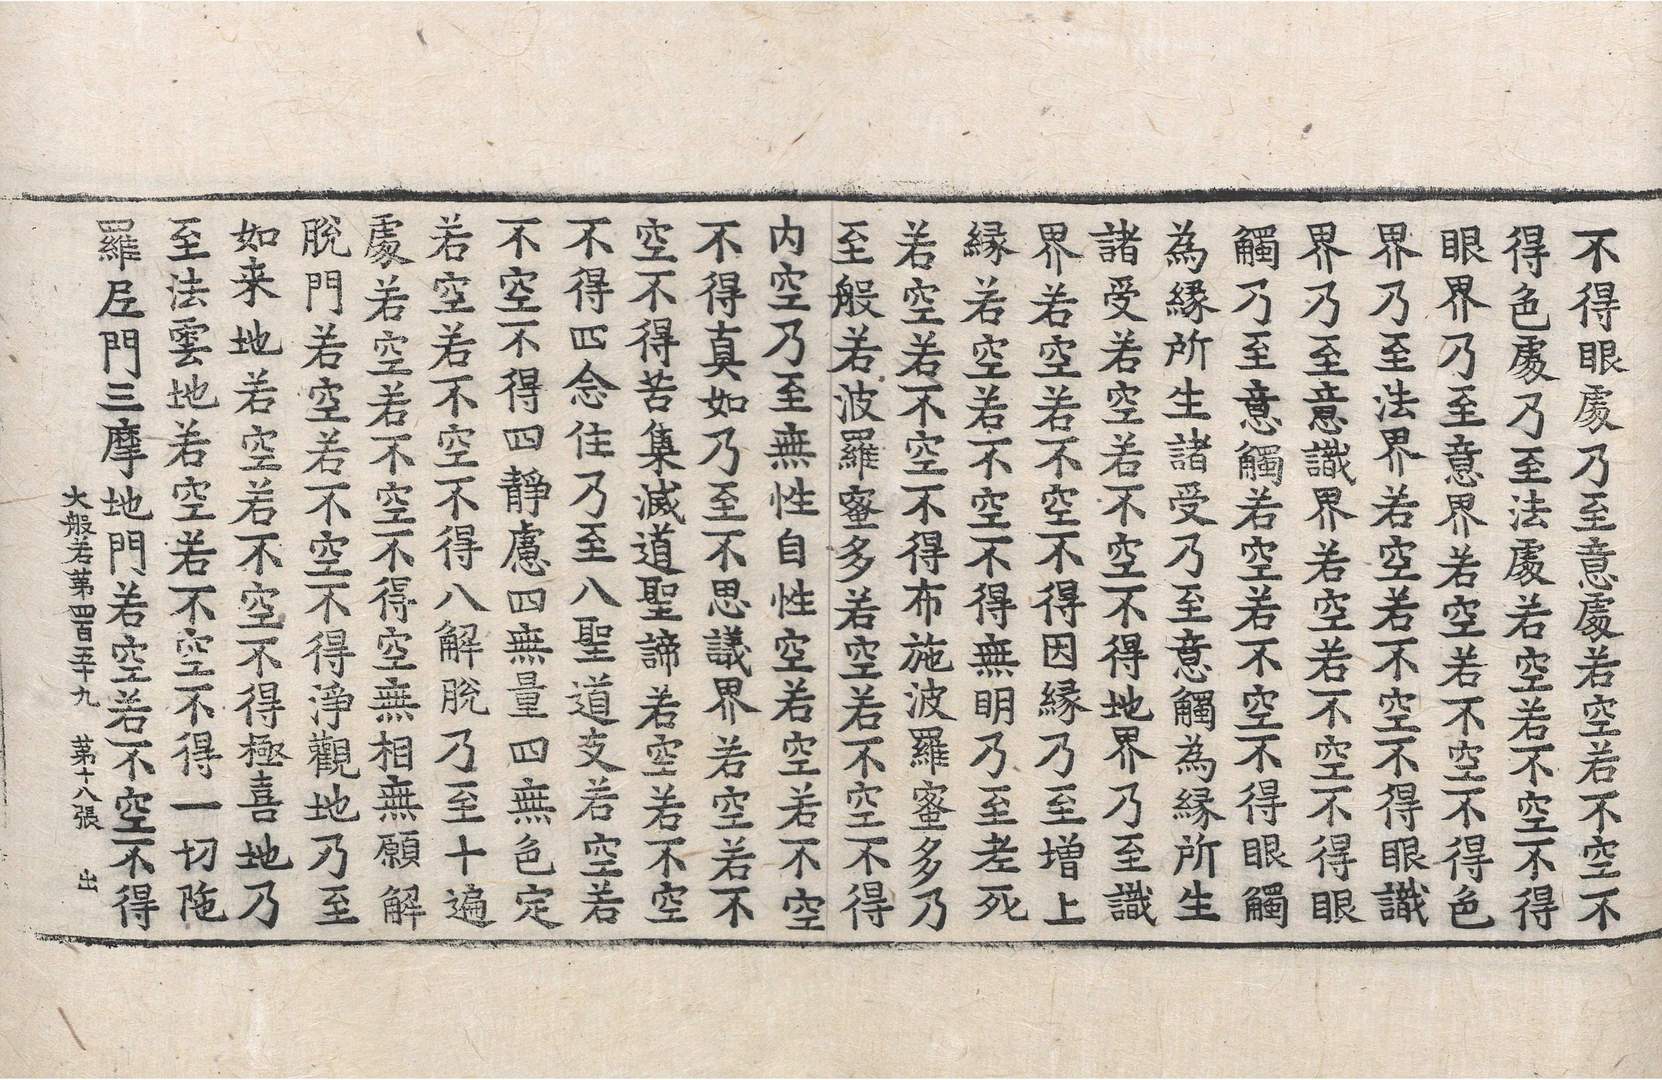 不得眼處乃至意處若空若不空不
得色處乃至法處若空若不空不得
眼界乃至意界若空若不空不得色
界乃至法界若空若不空不得眼識
界乃至意識界若空若不空不得眼
觸乃至意觸若空若不空不得眼觸
為緣所生諸受乃至意觸為緣所生
諸受若空若不空不得地界乃至識
界若空若不空不得因緣乃至增上
緣若空若不空不得無明乃至老死
若空若不空不得布施波羅蜜多乃
至般若波羅蜜多若空若不空不得
內空乃至無性自性空若空若不空
不得真如乃至不思議界若空若不
空不得苦集滅道聖諦若空若不空
不得四念住乃至八聖道支若空若
不空不得四靜慮四無量四無色定
若空若不空不得八解脫乃至十遍
處若空若不空不得空無相無願解
脫門若空若不空不得淨觀地乃至
如来地若空若不空不得極喜地乃
至法雲地若空若不空不得一切陁
羅尼門三摩地門若空若不空不得
大般若第四百五十九 第十八張 出